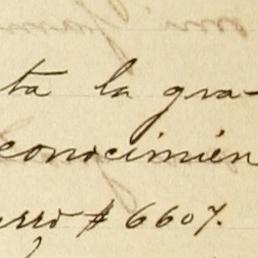 ta la gra-
conocimien
erro $ 6607.